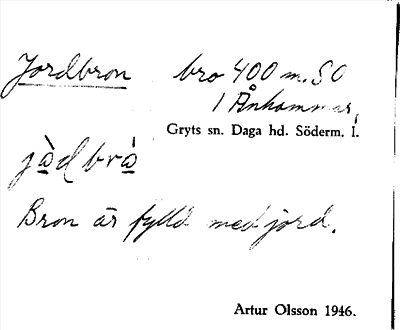 Jordbron bro 400 m. SO
l Ånhammar,
Gryts sn. Daga hd. Söderm. l.
jàdbrà
Bron är fylld med jord.
Artur Olsson 1946.